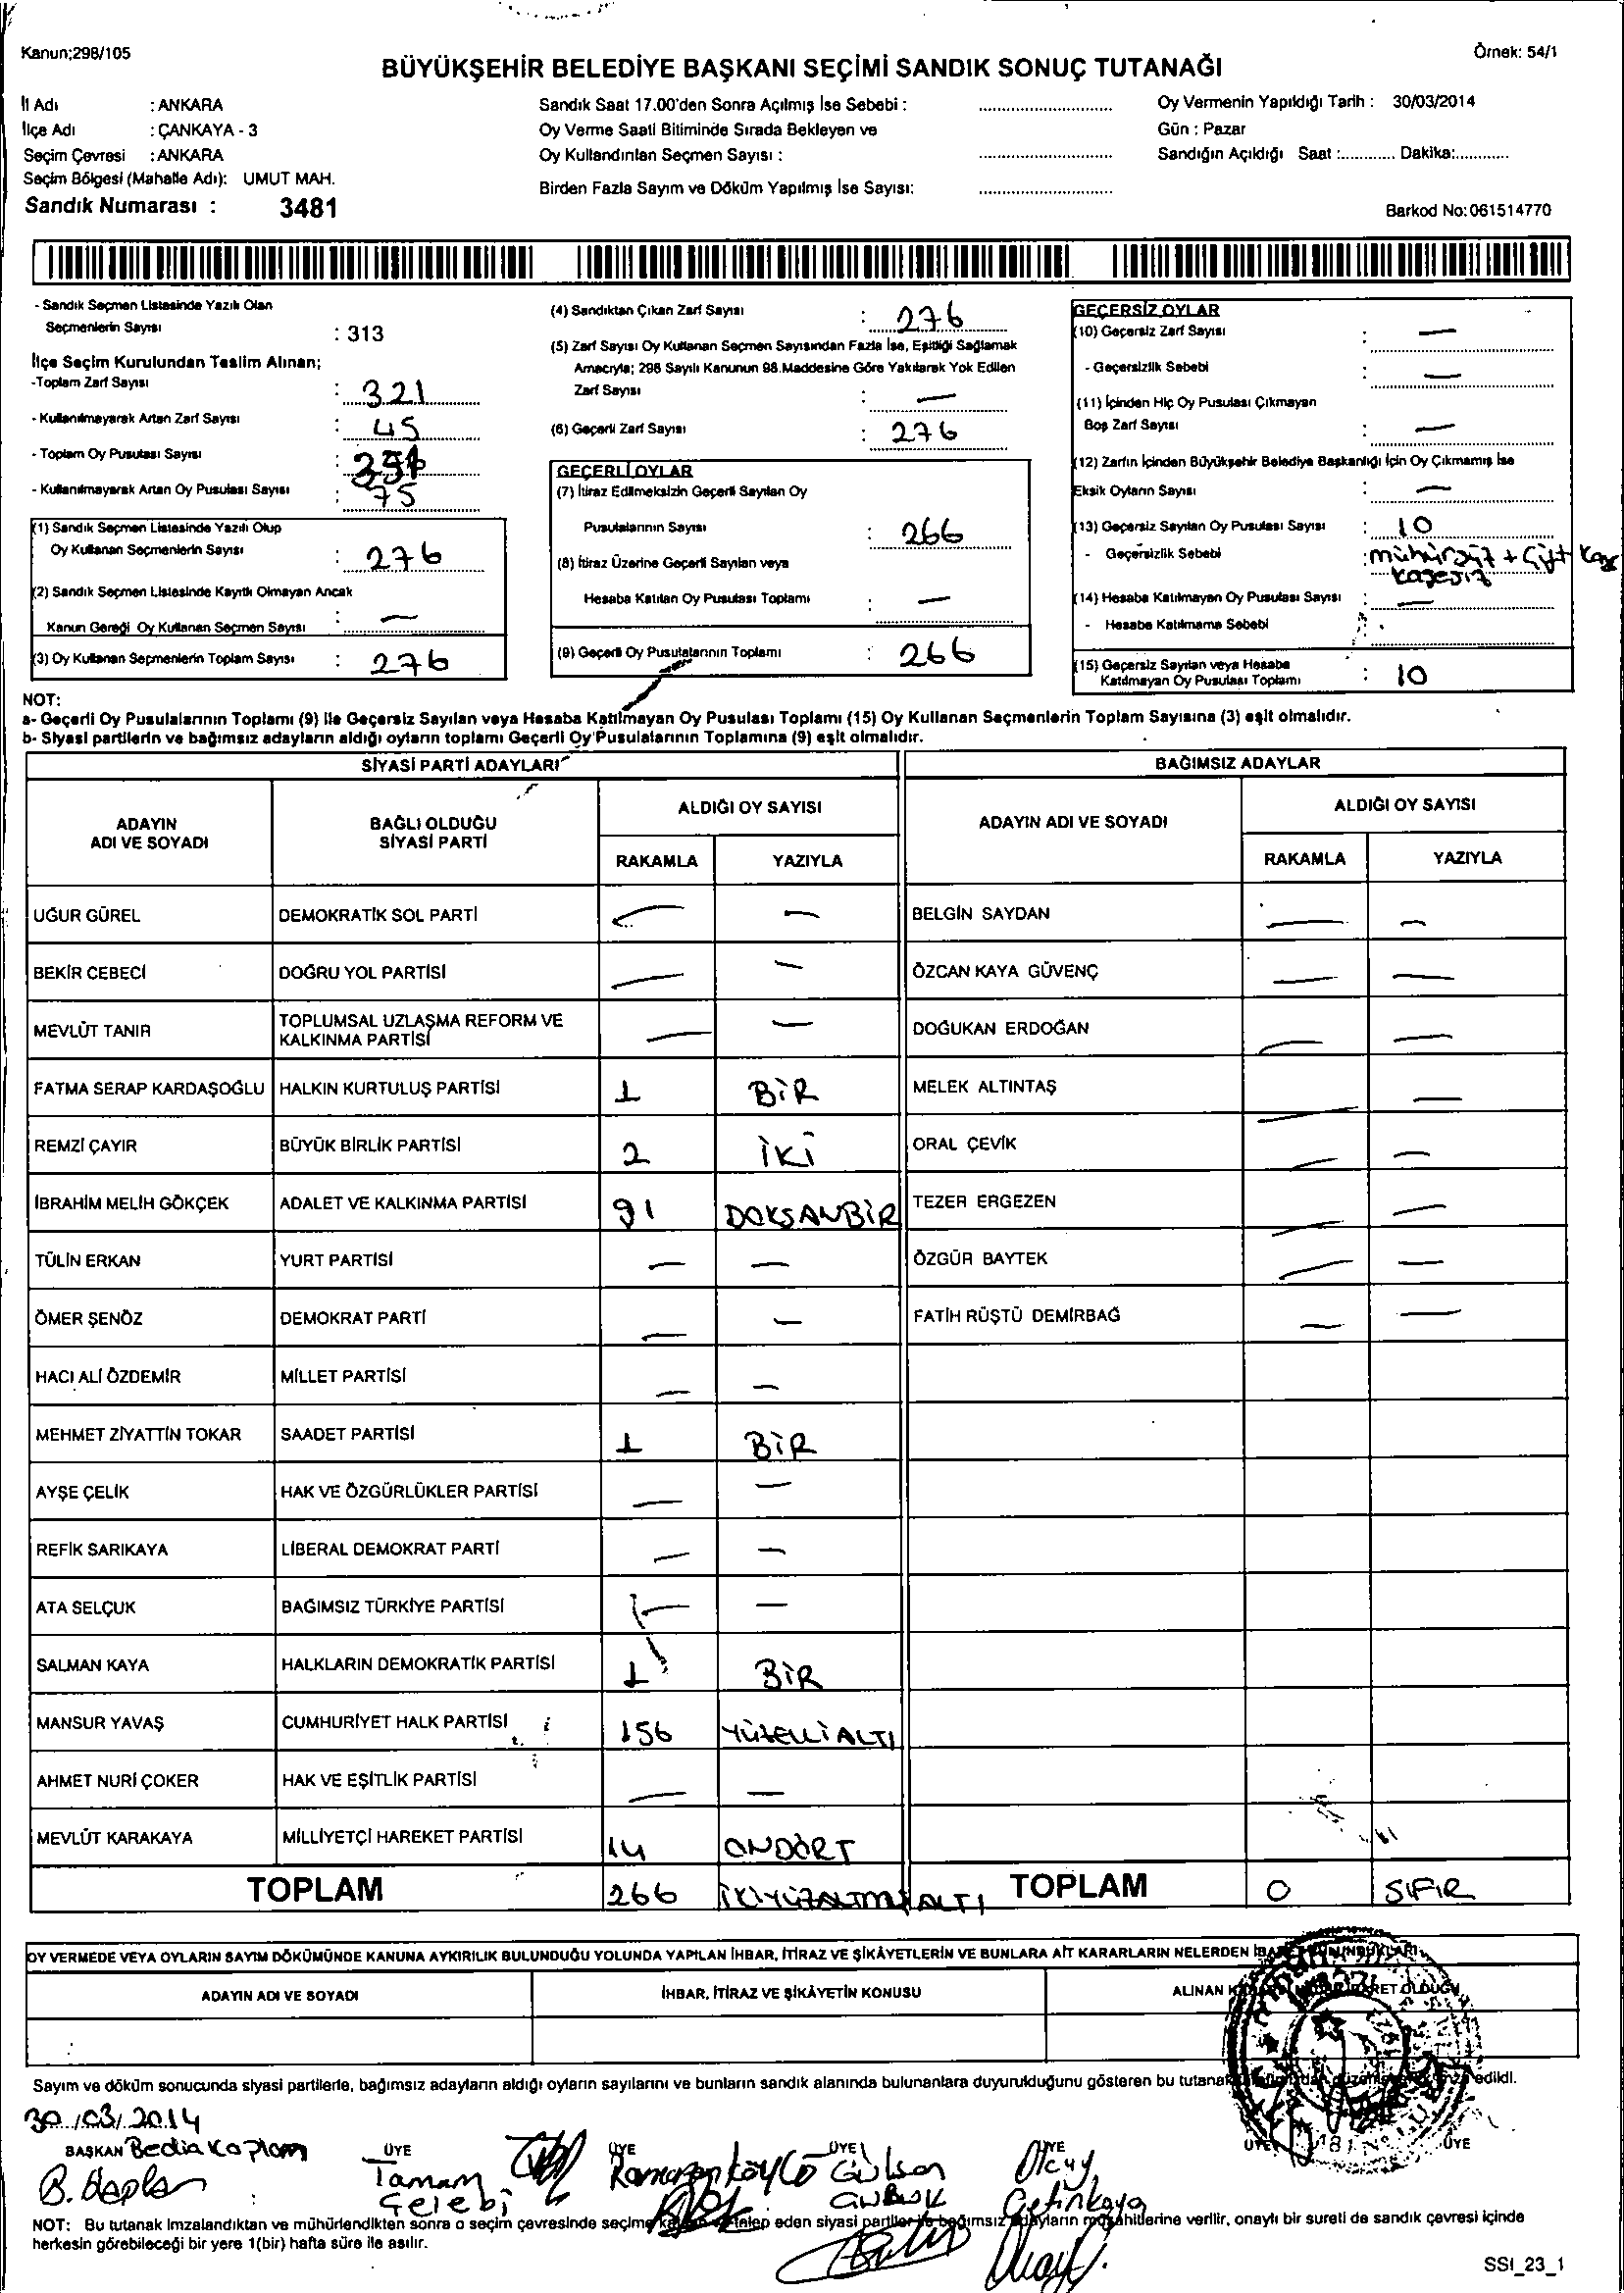 Kanun;298/105
Örnek: 54/1
BÜYÜKŞEHİR BELEDİYE BAŞKANI SEÇİMİ SANDIK SONUÇ TUTANAĞI
İl Adı : ANKARA
İlçe Adı : ÇANKAYA - 3
Seçim Çevresi : ANKARA
Seçim Bölgesi (Mahalle Adı): UMUT MAH.
Sandık Numarası : 3481
Sandık Saat 17.00'den Sonra Açılmış İse Sebebi :
Oy Verme Saati Bitiminde Sırada Bekleyen ve
Oy Kullandırılan Seçmen Sayısı :
Birden Fazla Sayım ve Döküm Yapılmış İse Sayısı:
Oy Vermenin Yapıldığı Tarih : 30/03/2014
Gün : Pazar
Sandığın Açıldığı Saat :............ Dakika:............
Barkod No:061514770
- Sandık Seçmen Listesinde Yazılı Olan
Seçmenlerin Sayısı : 313
İlçe Seçim Kurulundan Teslim Alınan;
-Toplam Zarf Sayısı : 321
- Kullanılmayarak Artan Zarf Sayısı : 45
- Toplam Oy Pusulası Sayısı :
- Kullanılmayarak Artan Oy Pusulası Sayısı : 75
(1) Sandık Seçmen Listesinde Yazılı Olup
Oy Kullanan Seçmenlerin Sayısı : 276
(2) Sandık Seçmen Listesinde Kayıtlı Olmayan Ancak
Kanun Gereği Oy Kullanan Seçmen Sayısı : —
(3) Oy Kullanan Seçmenlerin Toplam Sayısı : 276
(4) Sandıktan Çıkan Zarf Sayısı : 276
(5) Zarf Sayısı Oy Kullanan Seçmen Sayısından Fazla İse, Eşitliği Sağlamak
Amacıyla; 298 Sayılı Kanunun 98.Maddesine Göre Yakılarak Yok Edilen
Zarf Sayısı : —
(6) Geçerli Zarf Sayısı : 276
GEÇERLİ OYLAR
(7) İtiraz Edilmeksizin Geçerli Sayılan Oy
Pusulalarının Sayısı : 266
(8) İtiraz Üzerine Geçerli Sayılan veya
Hesaba Katılan Oy Pusulası Toplamı : —
(9) Geçerli Oy Pusulalarının Toplamı : 266
GEÇERSİZ OYLAR
(10) Geçersiz Zarf Sayısı : —
- Geçersizlik Sebebi : —
(11) İçinden Hiç Oy Pusulası Çıkmayan
Boş Zarf Sayısı : —
(12) Zarfın İçinden Büyükşehir Belediye Başkanlığı İçin Oy Çıkmamış İse
Eksik Oyların Sayısı : —
(13) Geçersiz Sayılan Oy Pusulası Sayısı : 10
- Geçersizlik Sebebi : mühürsüz + Çift
kaşesiz
(14) Hesaba Katılmayan Oy Pusulası Sayısı : —
- Hesaba Katılmama Sebebi :
(15) Geçersiz Sayılan veya Hesaba
Katılmayan Oy Pusulası Toplamı : 10
NOT:
a- Geçerli Oy Pusulalarının Toplamı (9) ile Geçersiz Sayılan veya Hesaba Katılmayan Oy Pusulası Toplamı (15) Oy Kullanan Seçmenlerin Toplam Sayısına (3) eşit olmalıdır.
b- Siyasi partilerin ve bağımsız adayların aldığı oyların toplamı Geçerli Oy Pusulalarının Toplamına (9) eşit olmalıdır.
SİYASİ PARTİ ADAYLARI
BAĞIMSIZ ADAYLAR
ADAYIN
ADI VE SOYADI
BAĞLI OLDUĞU
SİYASİ PARTİ
ALDIĞI OY SAYISI
RAKAMLA YAZIYLA
ADAYIN ADI VE SOYADI
ALDIĞI OY SAYISI
RAKAMLA YAZIYLA
UĞUR GÜREL DEMOKRATİK SOL PARTİ — — BELGİN SAYDAN — —
BEKİR CEBECİ DOĞRU YOL PARTİSİ — — ÖZCAN KAYA GÜVENÇ — —
MEVLÜT TANIR TOPLUMSAL UZLAŞMA REFORM VE
KALKINMA PARTİSİ — — DOĞUKAN ERDOĞAN — —
FATMA SERAP KARDAŞOĞLU HALKIN KURTULUŞ PARTİSİ 1 BİR MELEK ALTINTAŞ — —
REMZİ ÇAYIR BÜYÜK BİRLİK PARTİSİ 2 İKİ ORAL ÇEVİK — —
İBRAHİM MELİH GÖKÇEK ADALET VE KALKINMA PARTİSİ 91 DOKSANBİR TEZER ERGEZEN — —
TÜLİN ERKAN YURT PARTİSİ — — ÖZGÜR BAYTEK — —
ÖMER ŞENÖZ DEMOKRAT PARTİ — — FATİH RÜŞTÜ DEMİRBAĞ — —
HACI ALİ ÖZDEMİR MİLLET PARTİSİ — —
MEHMET ZİYATTİN TOKAR SAADET PARTİSİ 1 BİR
AYŞE ÇELİK HAK VE ÖZGÜRLÜKLER PARTİSİ — —
REFİK SARIKAYA LİBERAL DEMOKRAT PARTİ — —
ATA SELÇUK BAĞIMSIZ TÜRKİYE PARTİSİ — —
SALMAN KAYA HALKLARIN DEMOKRATİK PARTİSİ 1 BİR
MANSUR YAVAŞ CUMHURİYET HALK PARTİSİ 156 YÜZELLİALTI
AHMET NURİ ÇOKER HAK VE EŞİTLİK PARTİSİ — —
MEVLÜT KARAKAYA MİLLİYETÇİ HAREKET PARTİSİ 14 ONDÖRT
TOPLAM 266 İKİYÜZALTMIŞALTI TOPLAM 0 SIFIR
OY VERMEDE VEYA OYLARIN SAYIM DÖKÜMÜNDE KANUNA AYKIRILIK BULUNDUĞU YOLUNDA YAPILAN İHBAR, İTİRAZ VE ŞİKÂYETLERİN VE BUNLARA AİT KARARLARIN NELERDEN
ADAYIN ADI VE SOYADI İHBAR, İTİRAZ VE ŞİKÂYETİN KONUSU ALINAN
Sayım ve döküm sonucunda siyasi partilerle, bağımsız adayların aldığı oyların sayılarını ve bunların sandık alanında bulunanlara duyurulduğunu gösteren bu edildi.
30/03/2014
BAŞKAN Bedia Kaplan ÜYE ÜYE ÜYE ÜYE ÜYE ÜYE
B. Kaplan Tamam Gülsen Olcay
Çelebi Çetinkaya
NOT: Bu tutanak imzalandıktan ve mühürlendikten sonra o seçim çevresinde seçime talep eden siyasi partiler bağımsız müşahitlerine verilir, onaylı bir sureti de sandık çevresi içinde
herkesin görebileceği bir yere 1(bir) hafta süre ile asılır.
SSI_23_1